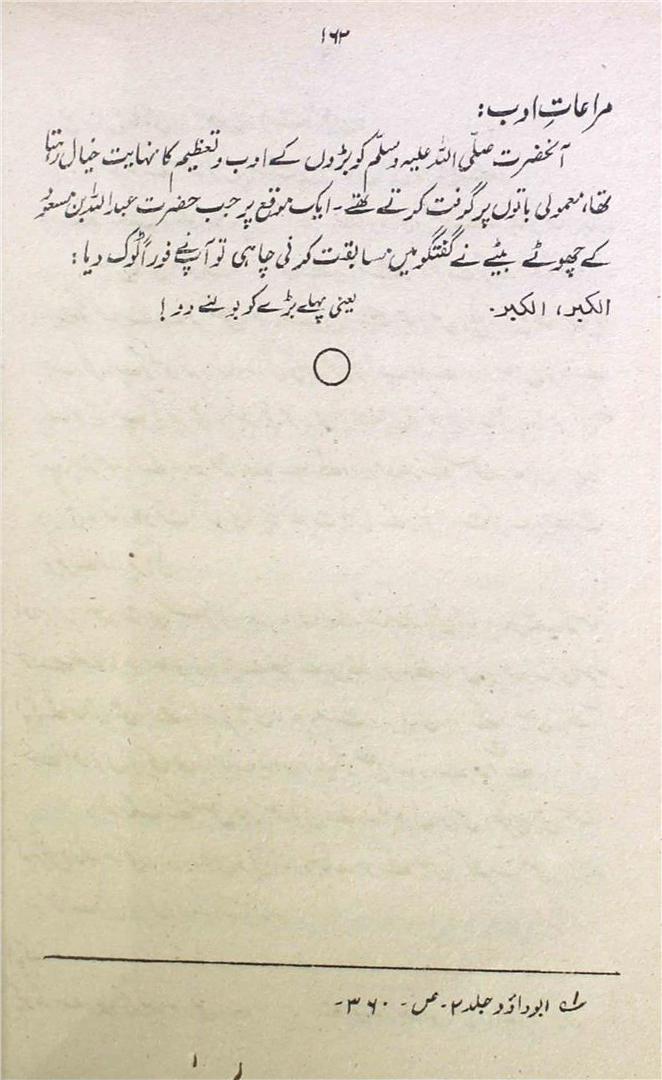 ۱۶۲
مراعاتِ ادب:
آنحضرت صلّی اللہ علیہ وسلّم کو بڑوں کے ادب و تعظیم کا نہایت خیال رہتا
تھا، معمولی باتوں پر گرفت کرتے تھے۔ ایک موقع پر جب حضرت عبداللہ بن مسعودؓ
کے چھوٹے بیٹے نے گفتگو میں مسابقت کرنی چاہی تو آپؐ نے فوراً ٹوک دیا:
الکبر، الکبر. یعنی پہلے بڑے کو بولنے دو!
۱؎ ابوداؤد جلد ۲۔ ص۔ ۳۶۰۔